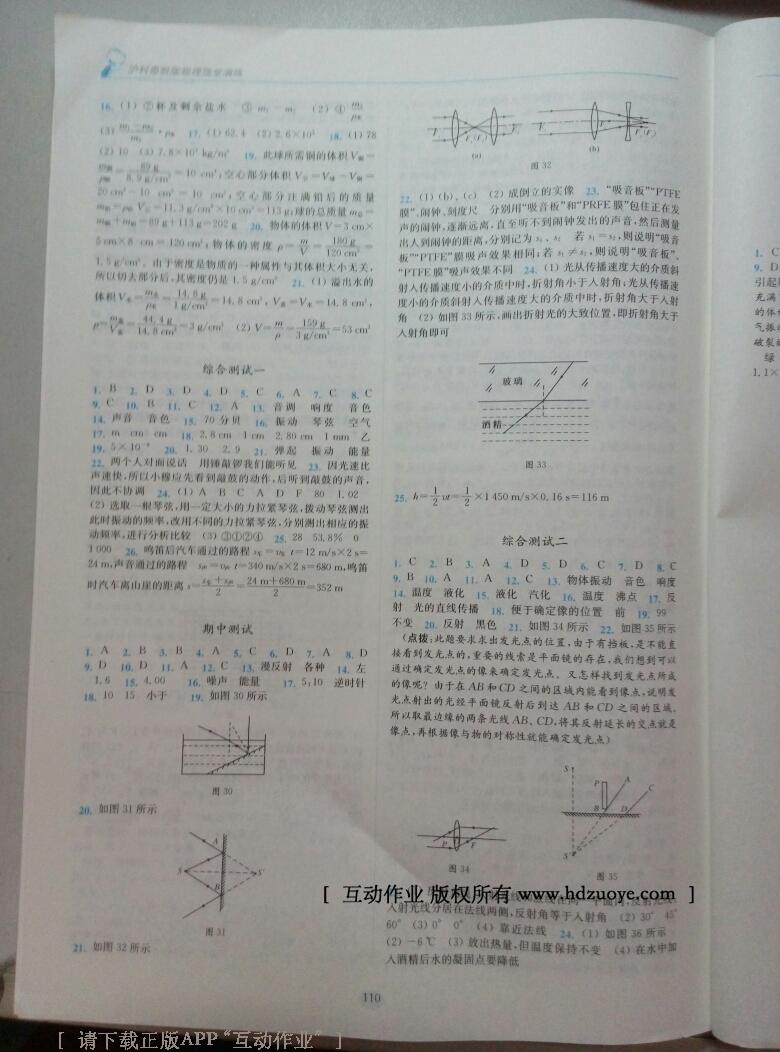 沪科粤教版物理随堂演练
16. (1) ②杯及剩余盐水 ③ m₁－m₂ (2) ④
17. (1) 62.4 (2) 2.6×10³ 18. (1) 78
(2) 10 (3) 7.8×10³ kg/m³ 19. 此球所需铜的体积V铜＝
m铜/ρ铜＝89 g/8.9 g/cm³＝10 cm³；空心部分体积V空＝V球－V铜＝
20 cm³－10 cm³＝10 cm³；空心部分注满铅后的质量
m铅＝ρ铅V空＝11.3 g/cm³×10 cm³＝113 g；球的总质量m总＝
m铜＋m铅＝89 g＋113 g＝202 g 20. 物体的体积V＝3 cm×
5 cm×8 cm＝120 cm³；物体的密度ρ＝m/V＝180 g/120 cm³＝
1.5 g/cm³。由于密度是物质的一种属性与其体积大小无关，
所以切去部分后，其密度仍是1.5 g/cm³ 21. (1) 溢出水的
体积V水＝m水/ρ水＝14.8 g/1 g/cm³＝14.8 cm³，V盖＝V水＝14.8 cm³，
ρ＝m盖/V盖＝44.4 g/14.8 cm³＝3 g/cm³ (2) V＝m/ρ＝159 g/3 g/cm³＝53 cm³
综合测试一
1. B 2. D 3. D 4. D 5. C 6. A 7. C 8. C
9. C 10. B 11. C 12. A 13. 音调 响度 音色
14. 声音 音色 15. 70分贝 16. 振动 琴弦 空气
17. m cm cm 18. 2.8 cm 1 cm 2.80 cm 1 mm 乙
20. 1.30 2.9 21. 弹起 振动 能量
22. 两个人对面说话 用锤敲锣我们能听见 23. 因光速比
声速快，所以小穆应先看到敲鼓的动作，后听到敲鼓的声音，
因此不协调 24. (1) A B C A D F 80 1.02
(2) 选取一根琴弦，用一定大小的力拉紧琴弦，拨动琴弦测出
此时振动的频率，改用不同的力拉紧琴弦，分别测出相应的振
动频率，进行分析比较 (3) ③①②④ 25. 28 53.8% 0
1 000 26. 鸣笛后汽车通过的路程 s车＝v车 t＝12 m/s×2 s＝
24 m，声音通过的路程 s声＝v声 t＝340 m/s×2 s＝680 m，鸣笛
时汽车离山崖的距离 s＝(s车＋s声)/2＝(24 m＋680 m)/2＝352 m
期中测试
1. A 2. B 3. B 4. A 5. C 6. D 7. A 8. D
9. D 10. D 11. A 12. C 13. 漫反射 各种 14. 左
1.6 15. 4.00 16. 噪声 能量 17. 5:10 逆时针
18. 10 15 小于 19. 如图30所示
图30
20. 如图31所示
A
S
S'
B
图31
21. 如图32所示
(a)
(b)
图32
22. (1) (b)、(c) (2) 成倒立的实像 23. “吸音板”“PTFE
膜”、闹钟、刻度尺 分别用“吸音板”和“PRFE膜”包住正在发
声的闹钟，逐渐远离，直至听不到闹钟发出的声音，然后测量
出人到闹钟的距离，分别记为s₁、s₂ 若s₁＝s₂，则说明“吸音
板”“PTFE”膜吸声效果相同；若s₁≠s₂，则说明“吸音板”、
“PTFE膜”吸声效果不同 24. (1) 光从传播速度大的介质斜
射入传播速度小的介质中时，折射角小于入射角；光从传播速
度小的介质斜射入传播速度大的介质中时，折射角大于入射
角 (2) 如图33所示，画出折射光的大致位置，即折射角大于
入射角即可
玻璃
酒精
图33
25. h＝1/2 vt＝1/2×1 450 m/s×0.16 s＝116 m
综合测试二
1. C 2. B 3. A 4. D 5. D 6. C 7. D 8. C
9. B 10. A 11. A 12. C 13. 物体振动 音色 响度
14. 温度 液化 15. 液化 汽化 16. 温度 沸点 17. 反
射 光的直线传播 18. 便于确定像的位置 前 19. 99
不变 20. 反射 黑色 21. 如图34所示 22. 如图35所示
(点拨：此题要求求出发光点的位置，由于有挡板，是不能直
接看到发光点的，重要的线索是平面镜的存在，我们想到可以
通过确定发光点的像来确定发光点。又怎样找到发光点所成
的像呢？由于在AB和CD之间的区域内能看到像点，说明发
光点射出的光经平面镜反射后到达AB和CD之间的区域，
所以取最边缘的两条光线AB、CD，将其反射延长的交点就是
像点，再根据像与物的对称性就能确定发光点)
P F
图34
S
P A C
B D
图35
[ 互动作业 版权所有 www.hdzuoye.com ]
入射光线分居在法线两侧，反射角等于入射角 (2) 30° 45°
60° (3) 0° 0° (4) 靠近法线 24. (1) 如图36所示
(2) －6 ℃ (3) 放出热量，但温度保持不变 (4) 在水中加
入酒精后水的凝固点要降低
110
[ 请下载正版APP“互动作业” ]
1. C
9. D
引起
充满
的体
气振
破裂
绿
1.1×